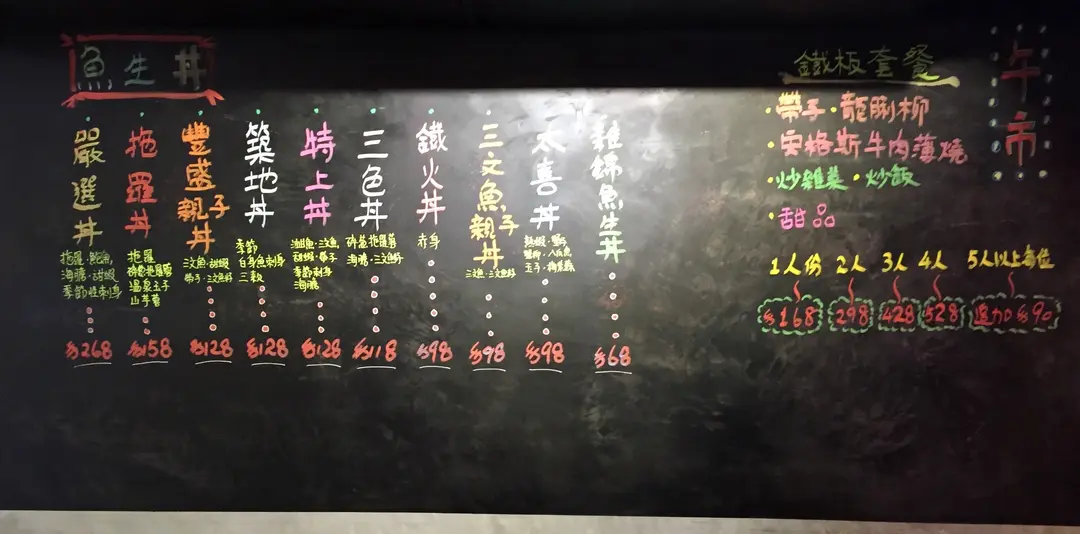 魚生丼
嚴選丼
海膽·甜蝦
季節性刺身
$268
拖羅丼
拖羅
溫泉玉子
山芋蓉
$158
豐盛親子丼
三文魚·甜蝦
帶子·三文魚籽
$128
築地丼
季節
白身魚刺身
三款
$128
特上丼
甜蝦·帶子
季節刺身
海膽
$128
三色丼
碎蔥拖羅蓉
海膽·三文魚籽
$118
鐵火丼
赤身
$98
三文魚親子丼
三文魚·三文魚籽
$98
太喜丼
$98
雜錦魚生丼
$68
午市
鐵板套餐
·帶子·龍脷柳
·安格斯牛肉薄燒
·炒雜菜·炒飯
·甜品
1人份 2人 3人 4人 5人以上每位
$168 298 428 528 追加$90